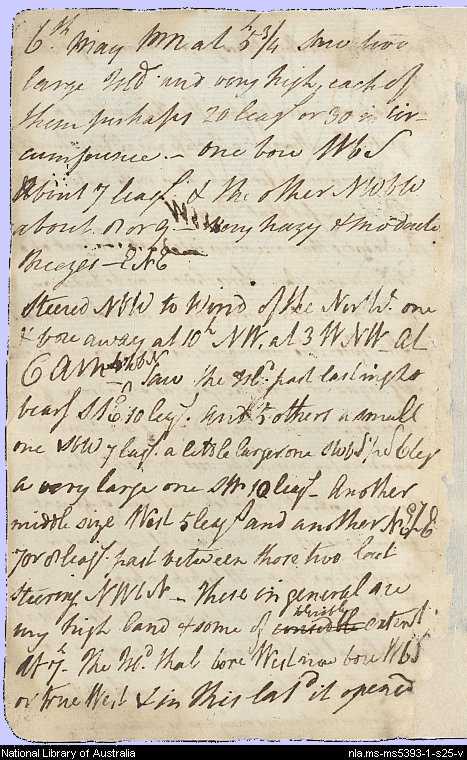 6th May PM at 5 3/4 saw two
large Isds and very high, each of
them perhaps 20 leags or 30 in cir-
cumference. - one bore WbS
about 7 leags & the other NWbW
about 8 or 9 - very hazy & moderate
Breezes - ENE
Steered NbW to Wind of the Northn one
& bore away at 10h NW, at 3 WNW. At
6 AM saw the Isd past last night
bears 10 leags. and 5 others a small
one SbW 7 leags. a little larger one SWbS 6 leags
a very large one SW 10 leags - Another
middle size West 5 leags and another
7 or 8 leags. past between those two last
steering NWbN - These in general are
very high land & some of considble extent
At 7h The Isd that bore West now bore WbS
or true West & in this latd it opened
National Library of Australia
nla.ms-ms5393-1-s25-v